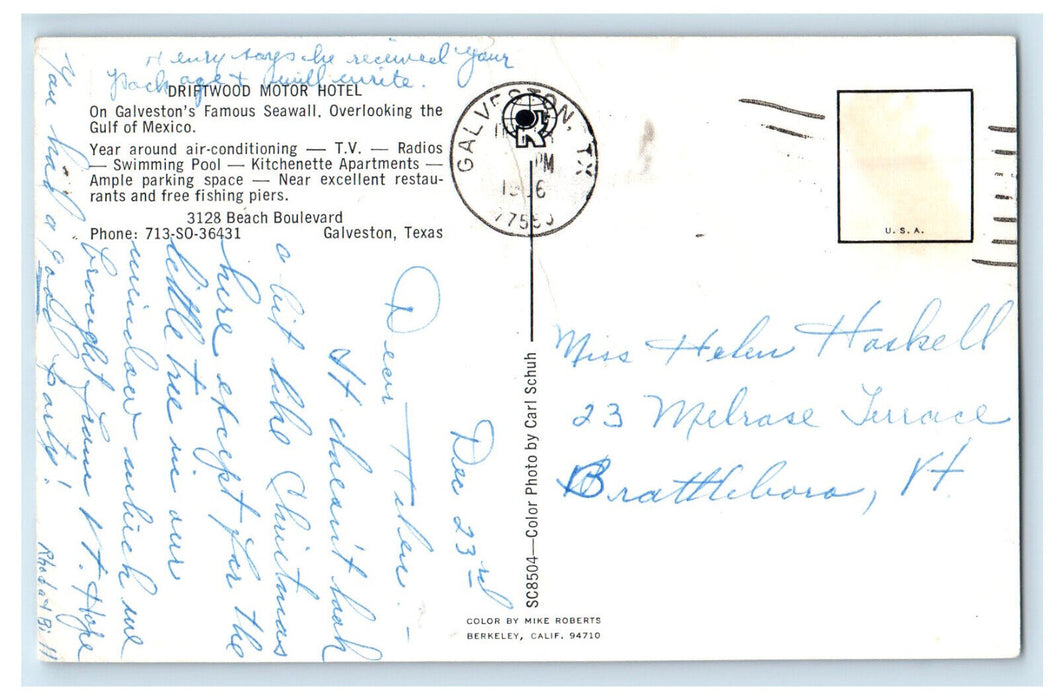 Henry says he received your
package & will write.
DRIFTWOOD MOTOR HOTEL
On Galveston's Famous Seawall, Overlooking the
Gulf of Mexico.
Year around air-conditioning — T.V. — Radios
— Swimming Pool — Kitchenette Apartments —
Ample parking space — Near excellent restau-
rants and free fishing piers.
3128 Beach Boulevard
Phone: 713-SO-36431 Galveston, Texas
Dec 23rd
Dear Helen -
It doesn't look
a bit like Christmas
here except for the
little tree in our
window which we
brought from Vt. Hope
you had a good party!
Rhoda & Bill
SC8504—Color Photo by Carl Schuh
COLOR BY MIKE ROBERTS
BERKELEY, CALIF. 94710
GALVESTON, TX
PM
U.S.A.
Miss Helen Haskell
23 Melrose Terrace
Brattleboro, Vt.